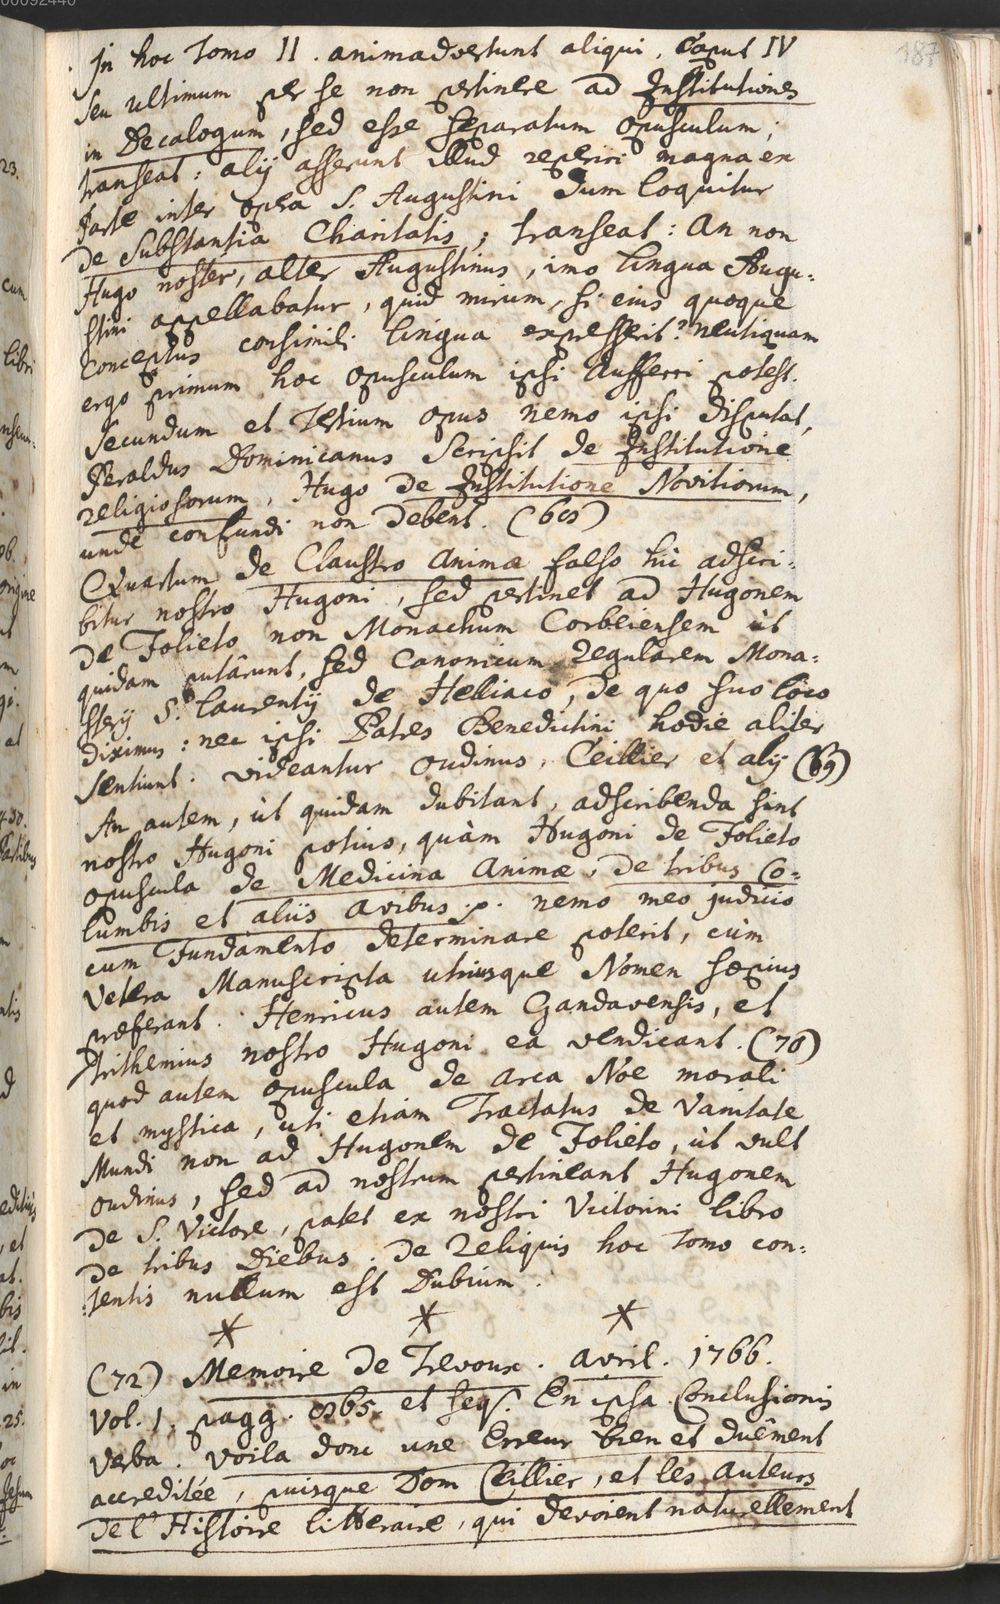 00092440
187
In hoc Tomo II. animadvertunt aliqui, Caput IV
seu ultimum per se non pertinere ad Institutiones
in Decalogum, sed esse separatum opusculum;
transeat: alij asserunt illud reperiri magna ex
parte inter opera S. Augustini dum loquitur
de Substantia Charitatis; transeat: An non
Hugo noster, alter Augustinus, imo lingua Augu-
stini appellabatur, quid mirum, si eius quoque
conceptus consimili lingua expresserit? neutiquam
ergo primum hoc opusculum ipsi aufferri potest.
Secundum et Tertium opus nemo ipsi disputat,
Peraldus Dominicanus scripsit de Institutione
religiosorum, Hugo de Institutione Novitiorum,
unde confundi non debent. (68)
Quartum de Claustro Animæ falso hic adscri-
bitur nostro Hugoni, sed pertinet ad Hugonem
de Folieto non Monachum Corbeiensem ut
quidam putârunt, sed Canonicum Regularem Mona-
sterij S. Laurentij de Helliaco, de quo suo loco
diximus: nec ipsi Patres Benedictini hodie aliter
sentiunt. videantur Oudinus, Ceillier et alij (69)
An autem, ut quidam dubitant, adscribenda sint
nostro Hugoni potius, quàm Hugoni de Folieto
opuscula de Medicina Animæ, de tribus Co-
lumbis et aliis avibus p. nemo meo judicio
cum Fundamento determinare poterit, cùm
vetera Manuscripta utriusque Nomen sæpius
præferant. Henricus autem Gandavensis, et
Trithemius nostro Hugoni ea vendicant. (70)
quod autem opuscula de Arca Noe morali
et mystica, uti etiam Tractatus de Vanitate
Mundi non ad Hugonem de Folieto, ut vult
Oudinus, sed ad nostrum pertineant Hugonem
de S. Victore, patet ex nostri Victorini libro
de tribus Diebus. de reliquis hoc Tomo con-
tentis nullum est Dubium.
* * *
(72) Memoire de Trevoux. Avril. 1766.
Vol. 1. pagg. et seq. En ipsa Conclusionis
verba. voila donc une Erreur bien et duêment
accreditée, puisque Dom Ceillier, et les Auteurs
de l'Histoire litteraire, qui devoient naturellement